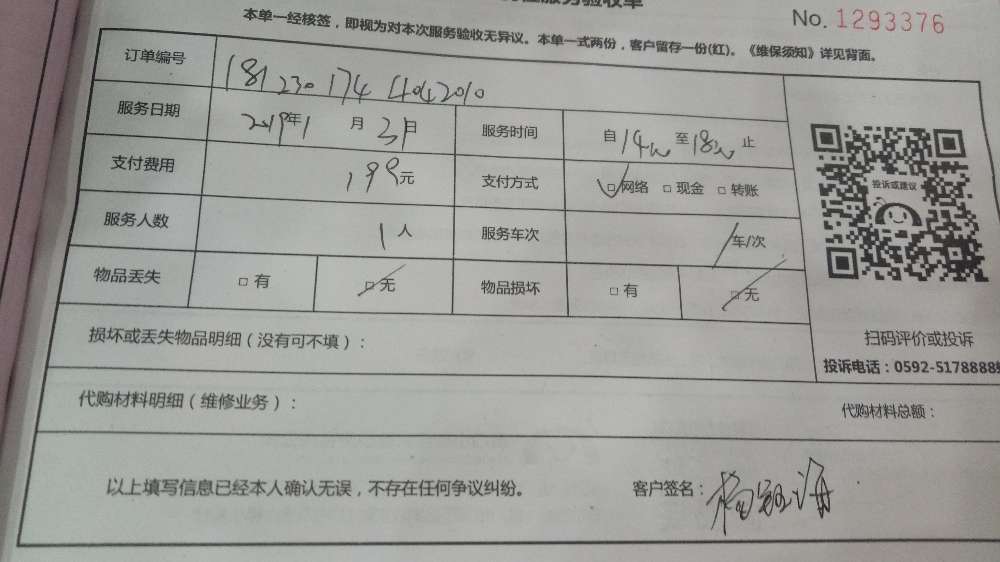 服务验收单
No. 1293376
本单一经核签，即视为对本次服务验收无异议。本单一式两份，客户留存一份(红)。《维保须知》详见背面。
订单编号 1812301744042010
服务日期 2019年1月3日 服务时间 自14 至18 止
支付费用 199元 支付方式 □网络 □现金 □转账
服务人数 1人 服务车次 /车/次
物品丢失 □有 □无 物品损坏 □有 □无
投诉或建议
扫码评价或投诉
投诉电话：0592-5178888
损坏或丢失物品明细（没有可不填）：
代购材料明细（维修业务）：
代购材料总额：
以上填写信息已经本人确认无误，不存在任何争议纠纷。
客户签名：